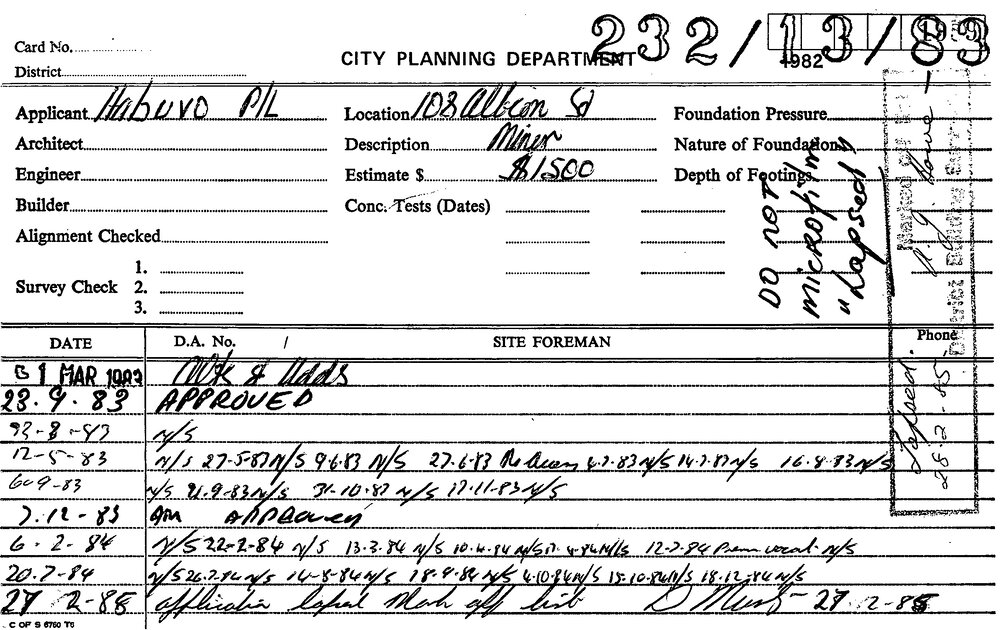 232/13/83
Card No.
CITY PLANNING DEPARTMENT
1982
District
Applicant Habuvo P/L Location 108 Albion St Foundation Pressure
Architect Description Minor Nature of Foundation
Engineer Estimate $ $1500 Depth of Footings
Builder Conc. Tests (Dates)
Alignment Checked
1.
Survey Check 2.
3.
DO NOT
MICROFILM
"Lapsed"
Marked off
District Building Surveyor
Lapsed.
28-2-85
DATE D.A. No. / SITE FOREMAN Phone
1 MAR Alts & Adds
28.9.83 APPROVED
N/S
12-5-83 N/S 27-5-83 N/S 9.6.83 N/S 27.6.83 4.7.83 N/S 14.7.83 N/S 16.8.83 N/S
N/S 21.9-83 N/S 31-10-83 N/S 17.11.83 N/S
7.12-83 APPROVED
6-2-84 N/S 22-2-84 N/S 13-3-84 N/S 10.4.84 N/S 12-7-84 N/S
20.7-84 N/S 26.7.84 N/S 14-8-84 N/S 18-9-84 N/S 4.10.84 N/S 15-10-84 N/S 18-12-84 N/S
27 2-85 application lapsed Mark off list 27-2-85
C OF S 6760 T6